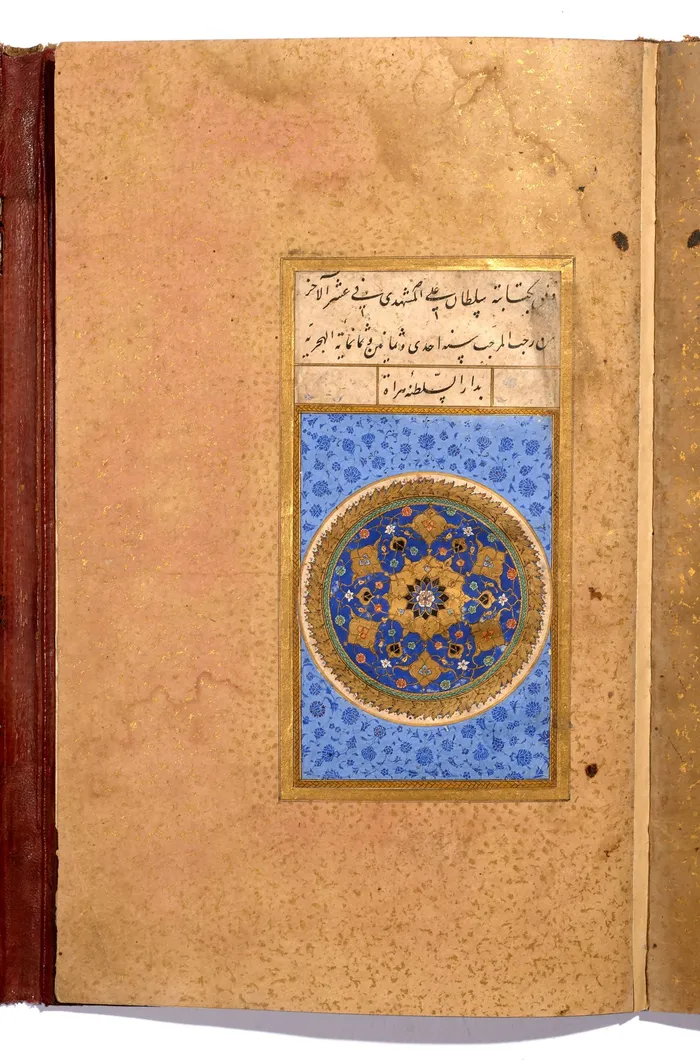 وفق بكتابته سلطان علي المشهدي في عشر الآخر
من رجب المرجب سنه احدى وثمانين وثمانمایة الهجریة
بدار السلطنه هراة